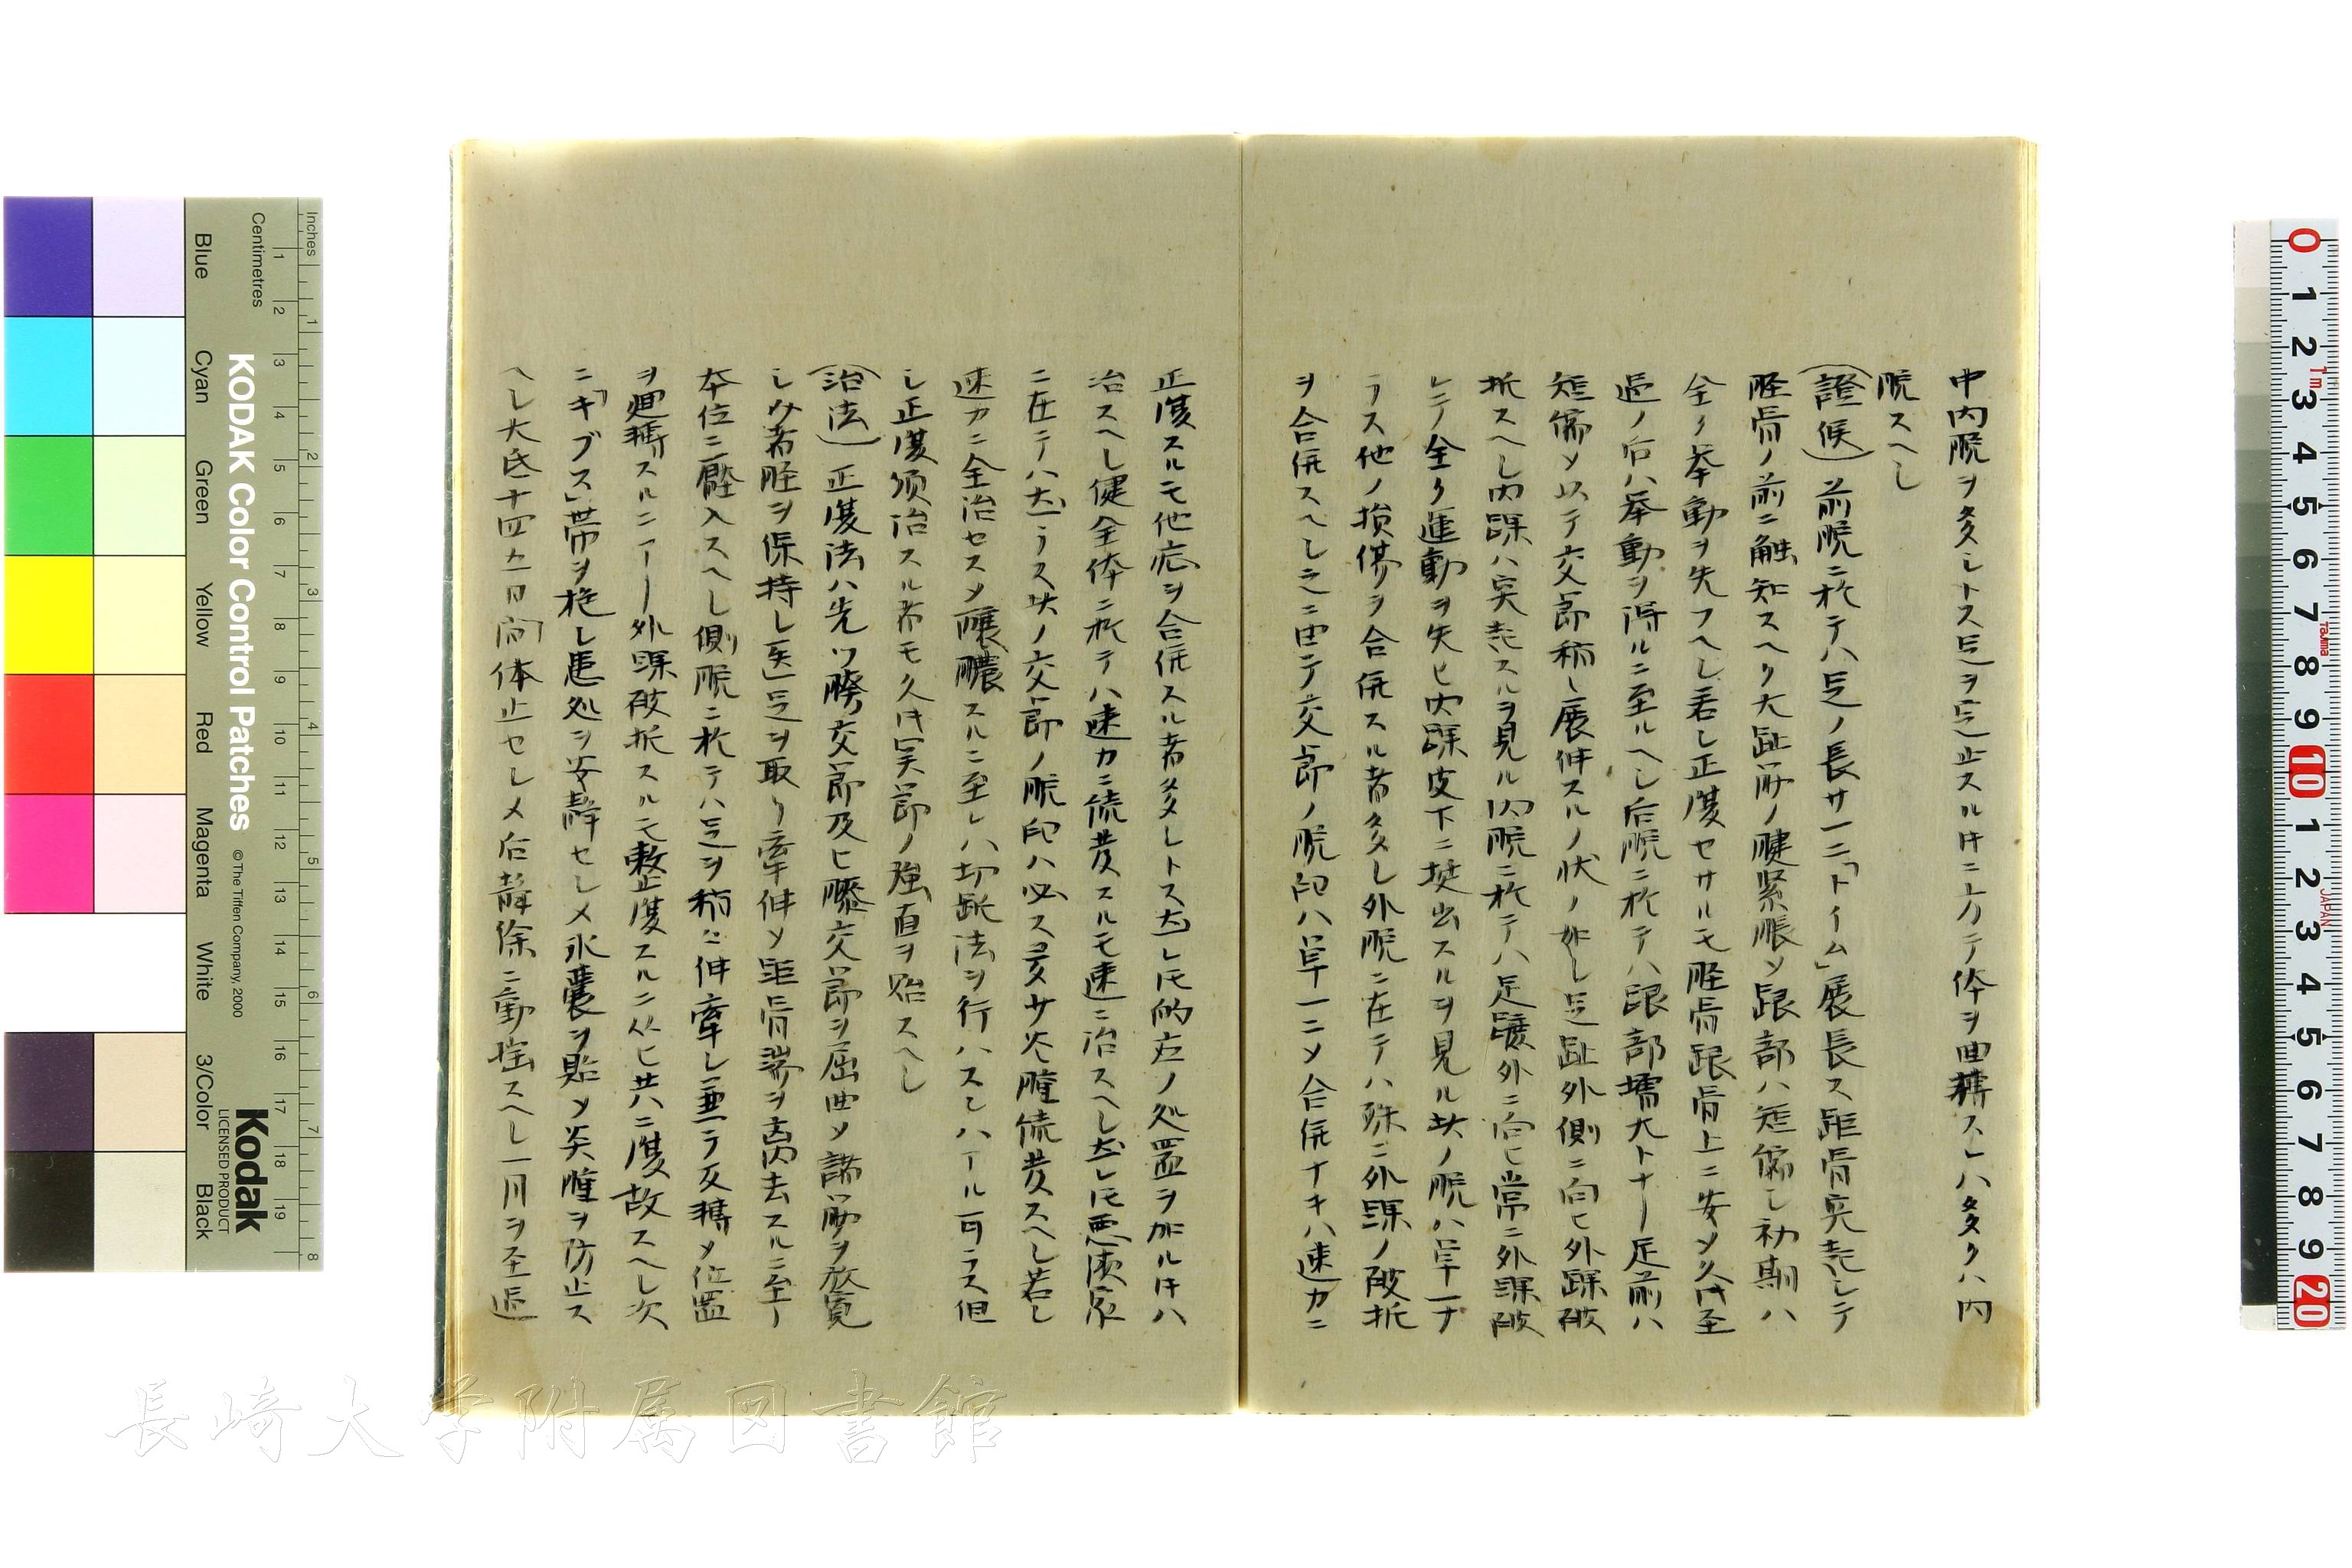 中内脱ヲ多シトス足ヲ足止スル时ニ方テ体ヲ囬轉スレハ多クハ内
脱スヘシ
(證候)前脱ニ於テハ足ノ長サ一二「ドイム」展長ス距骨突起シテ
脛骨ノ前ニ触知スヘク大趾筋ノ腱緊脹ソ跟部ハ短縮シ初期ハ
全ク挙動ヲ失フヘし若し正復セサルモ脛骨跟骨上ニ安ソ久时至
過ノ后ハ挙動ヲ得ルニ至ルヘし后脱ニ於テハ跟部増大トナー足前ハ
短縮ソ以テ交節稍し展伸スルノ状ノ如し足趾外側ニ向ヒ外踝破
折スヘし内踝ハ突起スルヲ見ル内脱ニ於テハ足蹠外ニ向ヒ常ニ外踝破
レテ全ク運動ヲ失ヒ内踝皮下ニ挺出スルヲ見ル此ノ脱ハ単一ナ
ラス他ノ損傷ヲ合併スル者多し外脱ニ在テハ殊ニ外踝ノ破折
ヲ合併スヘし之ニ由テ交節ノ脱臼ハ単一ニソ合併ナキハ速カニ
正復スルモ他症ヲ合併スル者多しトス然レ圧的應ノ処置ヲ加ル时ハ
治スヘし健全体ニ於テハ速カニ焮発スルモ速ニ治スヘし然レ圧悪液家
ニ在テハ然ラス此ノ交節ノ脱臼ハ必ス炎腫焮発スヘし若し
速カニ全治セスメ醸膿スルニ至レハ切断法ヲ行ハスレハアル可ラス但
し正復須治スル者モ久时実節ノ強直ヲ貽スヘし
(治法)正復法ハ先ツ膀交節及ヒ膝交節ヲ屈曲ソ諸筋ヲ放寛
し介者脛ヲ保持し医足ヲ取リ牽伸ソ距骨端ヲ离去スルニ至ー
本位ニ壓入スヘし側脱ニ於テハ足ヲ稍ニ伸牽し兼テ反轉ソ位置
ヲ廻轉スルニアー外踝破折スルモ整正復スルニ従ヒ共ニ復故スヘし次
ニ「キブス」帯ヲ施し患処ヲ安静セしメ氷嚢ヲ貼ソ炎腫ヲ防止ス
ヘし大底十四五日間体止セしメ后静徐ニ動揺スヘし一月ヲ至過
KODAK Color Control Patches
©The Tiffen Company, 2000
Kodak
LICENSED PRODUCT
Inches
Centimetres
Blue
Cyan
Green
Yellow
Red
Magenta
White
3/Color
Black
長崎大学附属図書館